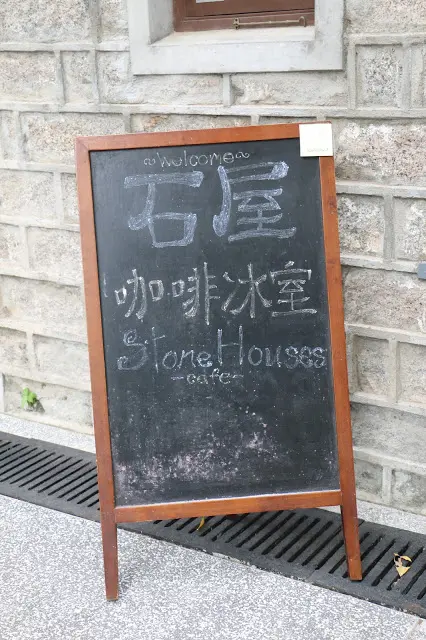 ~Welcome~
石屋
咖啡冰室
Stone Houses
-cafe-